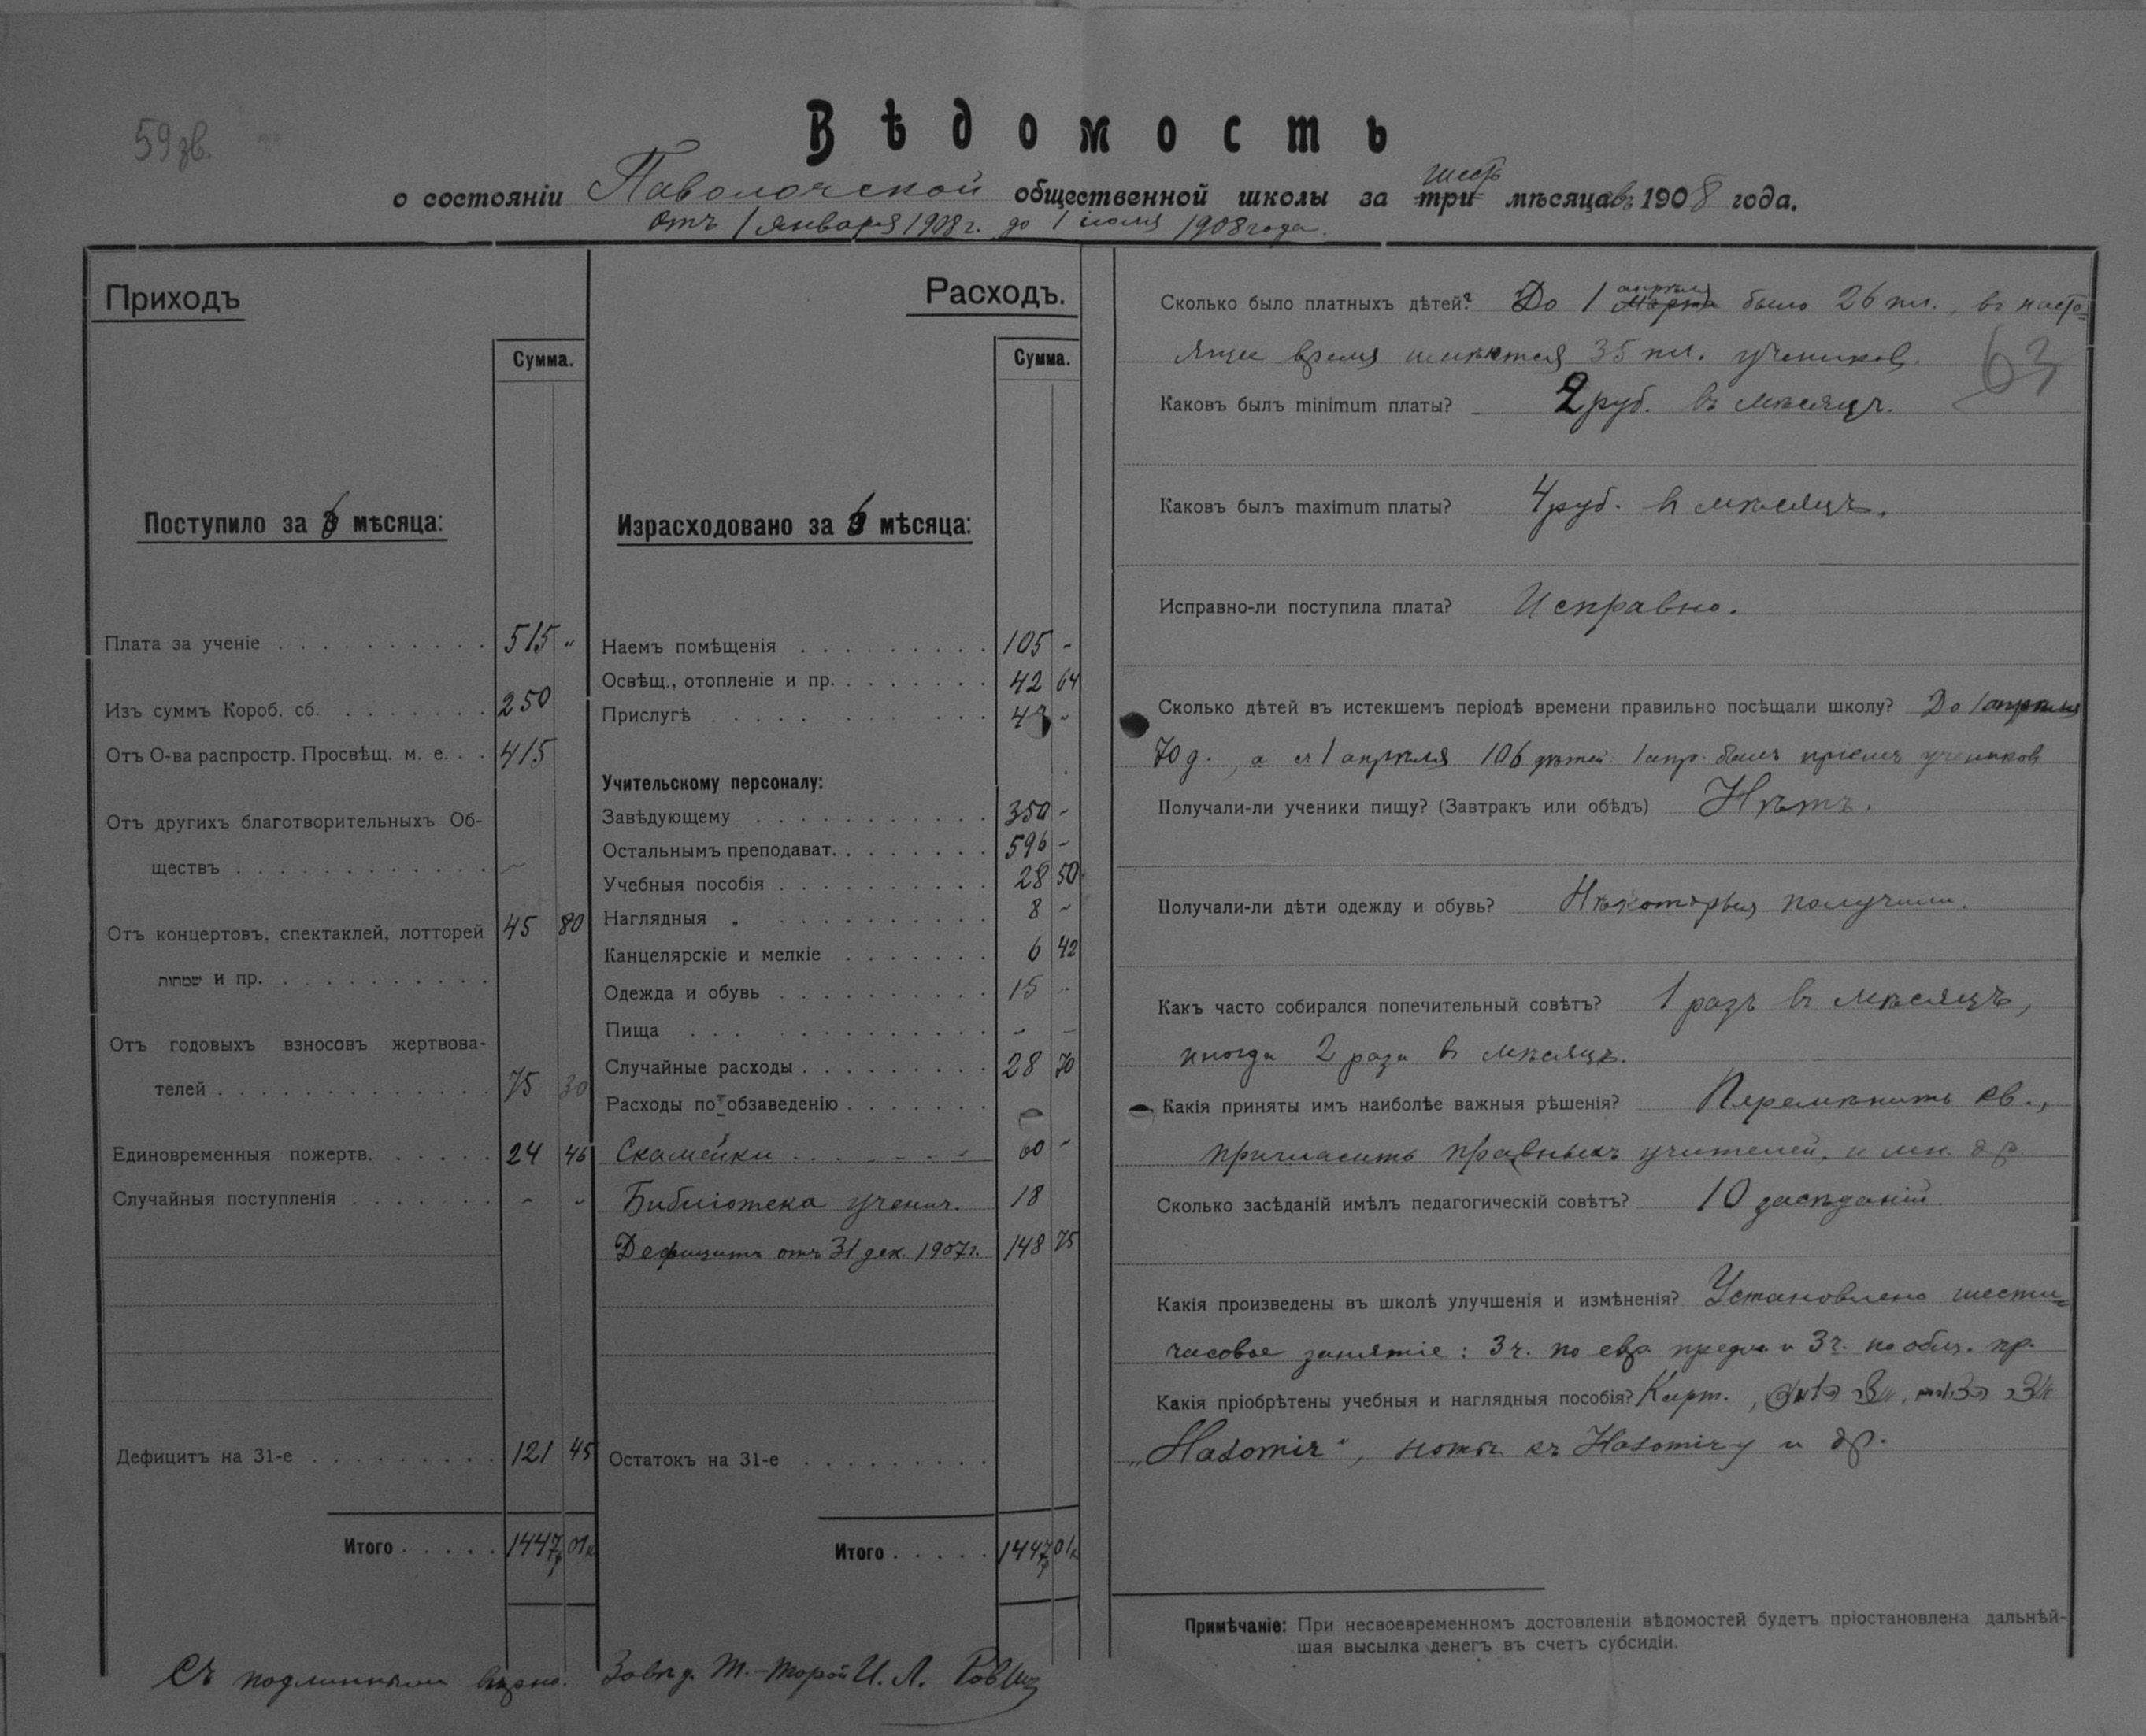 59 зв.
Вѣдомость
о состояніи Паволочской общественной школы за три шесть мѣсяцавъ 1908 года.
Отъ 1 января 1908 г. до 1 іюля 1908 года.
Приходъ
Сумма.
Поступило за 6 мѣсяца:
Плата за ученіе . . . . . . . . . . 515 "
Изъ суммъ Короб. сб. . . . . . . . 250
Отъ О-ва распростр. Просвѣщ. м. е. . . 415
Отъ другихъ благотворительныхъ Об-
ществъ . . . . . . . . . . . . . —
Отъ концертовъ, спектаклей, лотторей 45 80
שמחות и пр. . . . . . . . . . .
Отъ годовыхъ взносовъ жертвова-
телей . . . . . . . . . . . . . . 75 30
Единовременныя пожертв. . . . . . 24 46
Случайныя поступленія . . . . . . . - -
Дефицитъ на 31-е . . . . . . . . . 121 45
Итого . . . . . 1447р 01к
Расходъ.
Сумма.
Израсходовано за 6 мѣсяца:
Наемъ помѣщенія . . . . . . . . . 105 -
Освѣщ., отопленіе и пр. . . . . . . . 42 64
Прислугѣ . . . . . . . . . . . . -
Учительскому персоналу:
Завѣдующему . . . . . . . . . . . 350 -
Остальнымъ преподават. . . . . . . . 596 -
Учебныя пособія . . . . . . . . . . 28 50
Наглядныя „ . . . . . . . . . . 8 -
Канцелярскіе и мелкіе . . . . . . . 6 42
Одежда и обувь . . . . . . . . . . 15 -
Пища . . . . . . . . . . . . . - -
Случайные расходы . . . . . . . . . 28 70
Расходы по обзаведенію . . . . . . .
Скамейки . . . . . . 60 -
Библіотека ученич. 18
Дефицитъ отъ 31 дек. 1907 г. 148 75
Остатокъ на 31-е . . . . . . . . .
Итого . . . . . 1447р 01к
Сколько было платныхъ дѣтей? До 1 марта апрѣля было 26 пл., въ насто-
ящее время имѣются 35 пл. учениковъ.
63
Каковъ былъ minimum платы? 2 руб. въ мѣсяцъ.
Каковъ былъ maximum платы? 4 руб. въ мѣсяцъ.
Исправно-ли поступила плата? Исправно.
Сколько дѣтей въ истекшемъ періодѣ времени правильно посѣщали школу? До 1 апрѣля
70 д., а съ 1 апрѣля 106 дѣтей. 1 апр. былъ пріемъ учениковъ
Получали-ли ученики пищу? (Завтракъ или обѣдъ) Нѣтъ.
Получали-ли дѣти одежду и обувь? Нѣкоторыя получили.
Какъ часто собирался попечительный совѣтъ? 1 разъ въ мѣсяцъ,
иногда 2 раза въ мѣсяцъ.
Какія приняты имъ наиболѣе важныя рѣшенія? Перемѣнить кв.,
пригласить правныхъ учителей, и мн. др.
Сколько засѣданій имѣлъ педагогическій совѣтъ? 10 засѣданій.
Какія произведены въ школѣ улучшенія и измѣненія? Установлено шести-
часовое занятіе: 3 ч. по евр. предм. и 3 ч. по общ. пр.
Какія пріобрѣтены учебныя и наглядныя пособія? Карт.,
„Hasomir", ноты къ Hasomirу и др.
Примѣчаніе: При несвоевременномъ достовленіи вѣдомостей будетъ пріостановлена дальнѣй-
шая высылка денегъ въ счетъ субсидіи.
Съ подлиннымъ вѣрно. Завѣд. Т.-Торой И. Л.